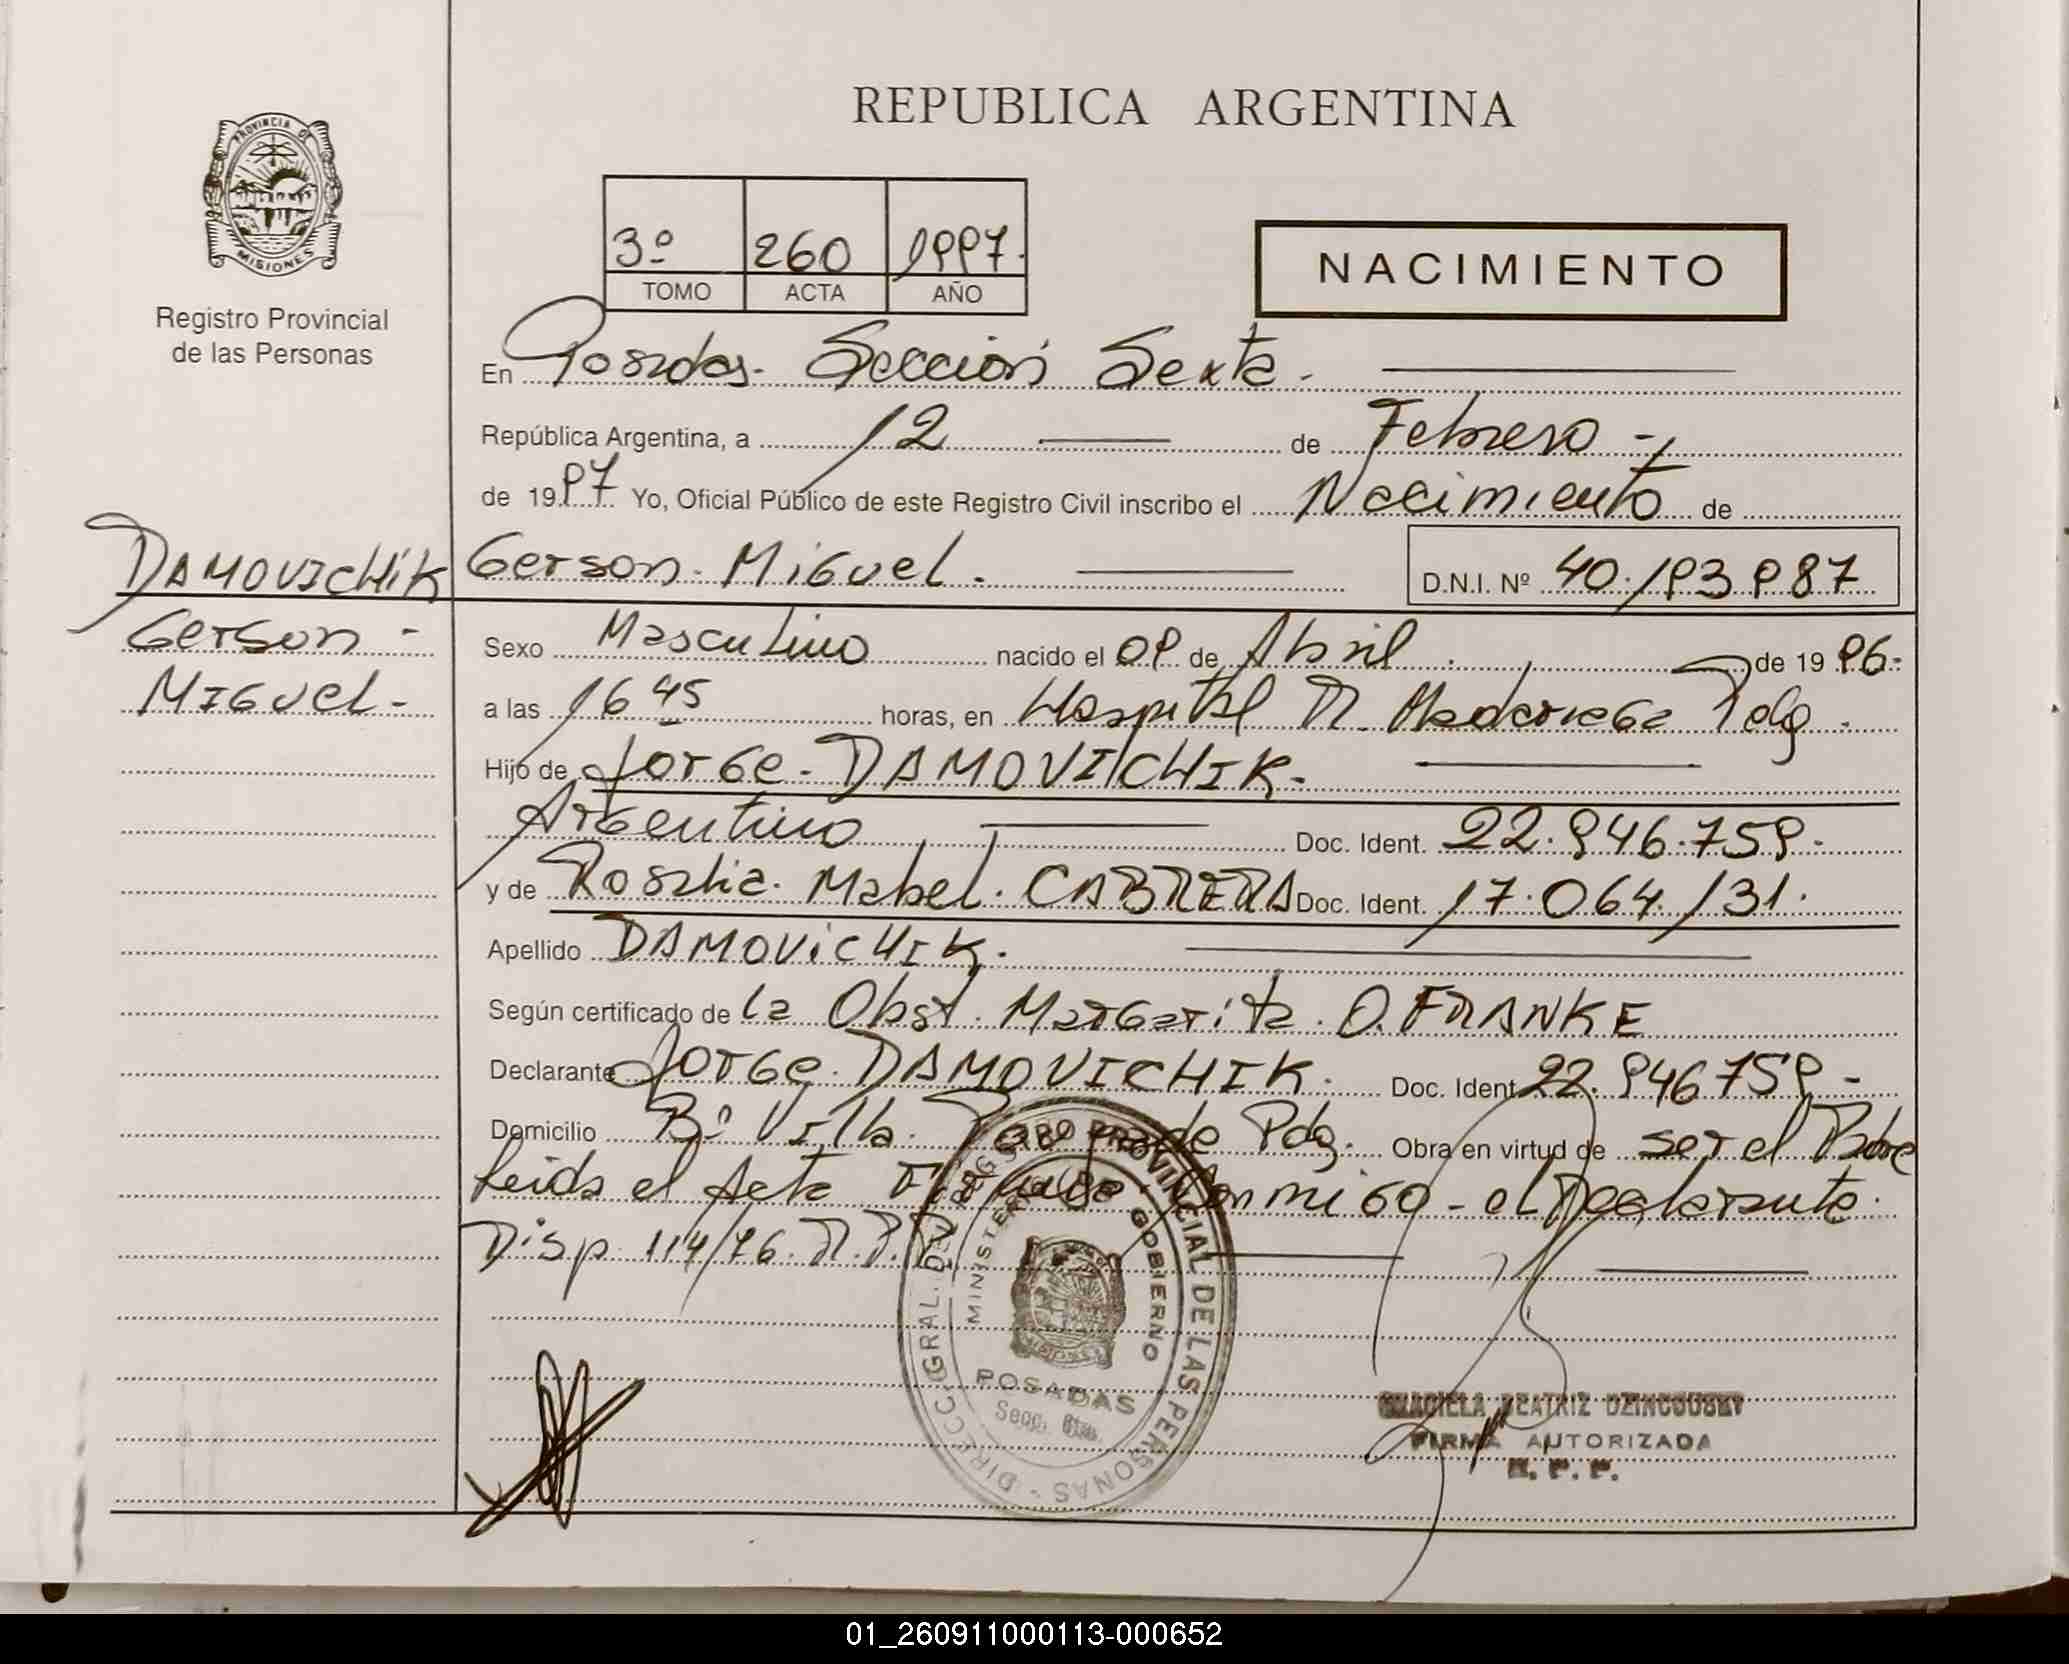 REPUBLICA ARGENTINA
PROVINCIA DE MISIONES
Registro Provincial
de las Personas
3º 260 1997.
TOMO ACTA AÑO
NACIMIENTO
En Posadas. Sección Sexta.
República Argentina, a 12 de Febrero
de 1997 Yo, Oficial Público de este Registro Civil inscribo el Nacimiento de
DAMOVICHIK
Gerson -
MIGUEL -
Gerson. Miguel. D.N.I. Nº 40.193987
Sexo Masculino nacido el 09 de Abril de 1996.
a las 16 45 horas, en Hospital R. Madariaga
Hijo de Jorge. DAMOVICHIK.
Argentino Doc. Ident. 22.946.759.
y de Rosalia. Mabel. CABRERA Doc. Ident. 17.064.131.
Apellido DAMOVICHIK.
Según certificado de la Obst. Margarita. O. FRANKE
Declarante Jorge. DAMOVICHIK. Doc. Ident. 22.946759
Domicilio Bº Villa. Pdas. Obra en virtud de ser el Padre
Leida el Acta conmigo - el Declarante.
Disp. 114/76. R.P.P.
DIRECC. GRAL. DEL REGISTRO PROVINCIAL DE LAS PERSONAS
MINISTERIO GOBIERNO
POSADAS
Secc. 6ta.
GRACIELA BEATRIZ
FIRMA AUTORIZADA
R. P. P.
01_260911000113-000652